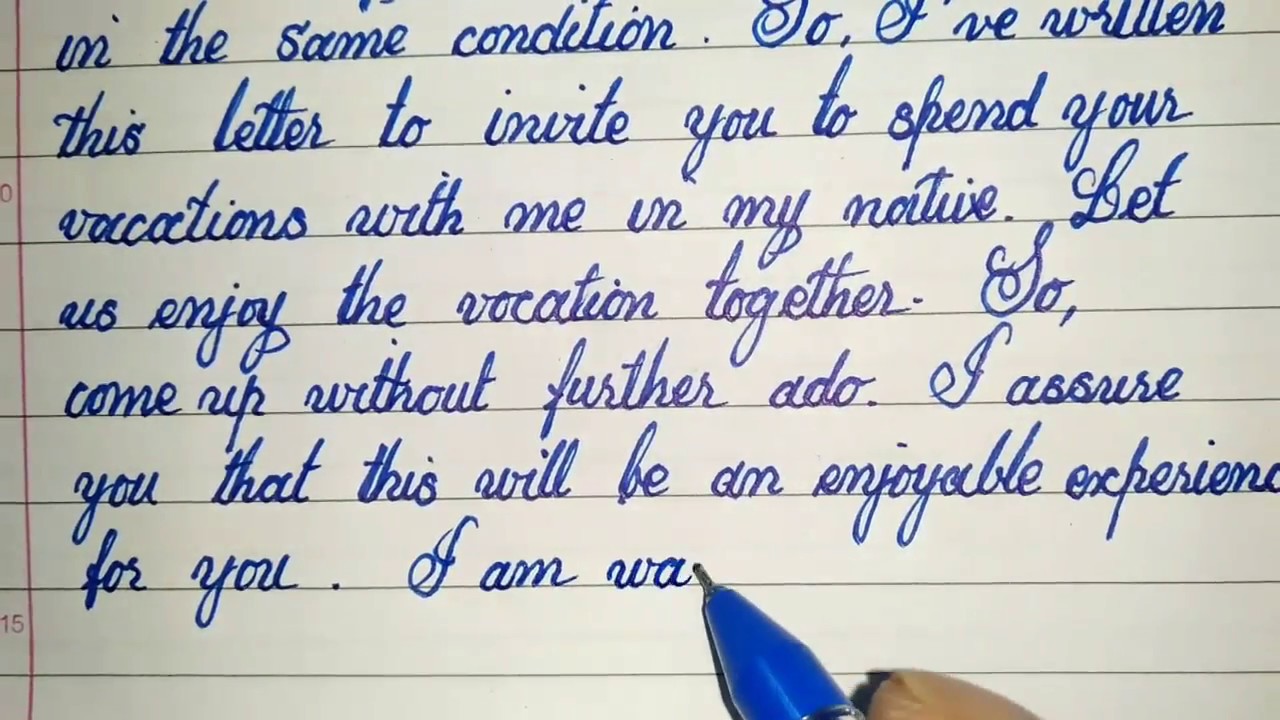 in the same condition. So, I've written
this letter to invite you to spend your
vacations with me in my native. Let
us enjoy the vocation together. So,
come up without further ado. I assure
you that this will be an enjoyable experienc
for you. I am wa
0
15